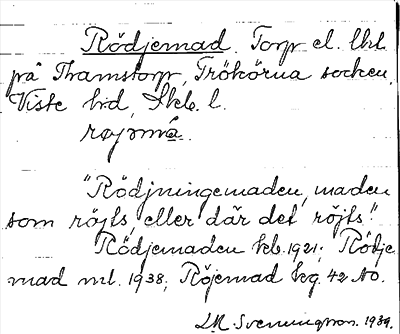 Rödjemad. Torp el. lht
på Thamstorp, Trökörna socken,
Viste hd, Skb. l.
røjəmá.
"Rödjningemaden, maden
som röjts, eller där det röjts."
Rödjemaden kb. 1921; Rödje
mad ml. 1938; Röjemad kg. 42 Ao.
Sveningson. 1939.